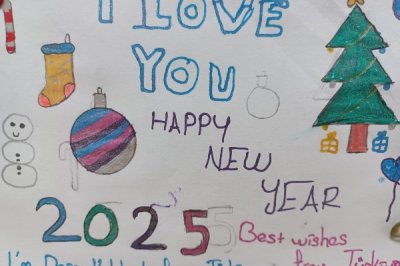 I LOVE
YOU
HAPPY
NEW
YEAR
2025
Best wishes
I'm
from